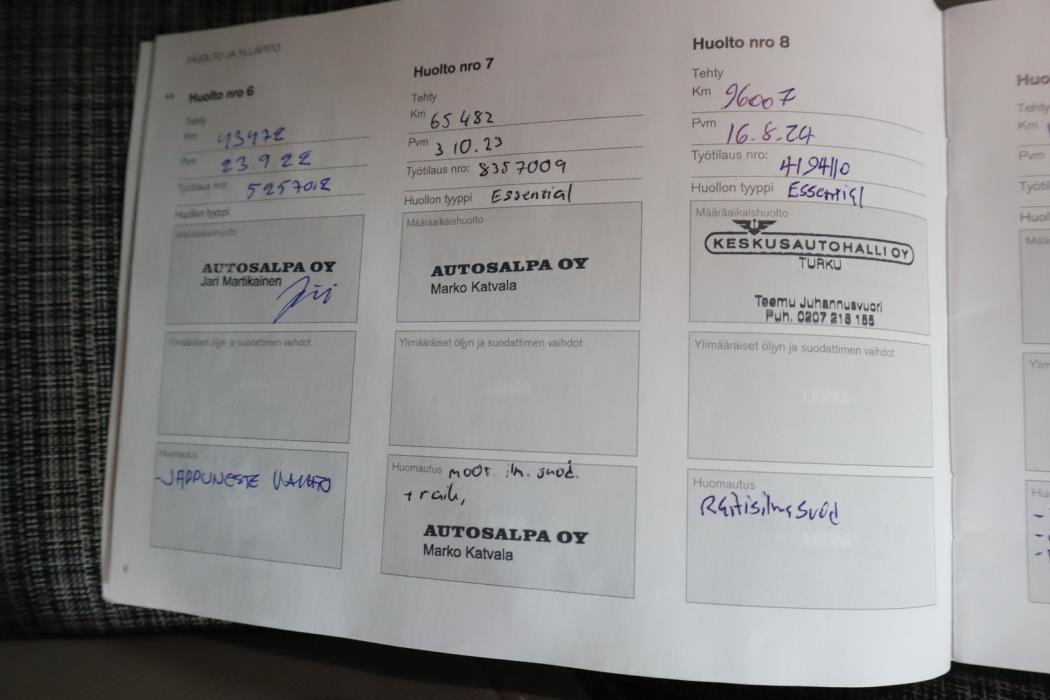 HUOLTO JA YLLÄPITO
Huolto nro 6
Tehty
Km 43472
Pvm 23.9 22
Työtilaus nro: 5257012
Huollon tyyppi
Määräaikaishuolto
AUTOSALPA OY
Jari Martikainen
Ylimääräiset öljyn ja suodattimen vaihdot
LEIMA
Huomautus
-JARRUNESTE VAIHTO
6
Huolto nro 7
Tehty
Km 65 482
Pvm 3.10.23
Työtilaus nro: 8357009
Huollon tyyppi Essential
Määräaikaishuolto
AUTOSALPA OY
Marko Katvala
Ylimääräiset öljyn ja suodattimen vaihdot
LEIMA
Huomautus moot. ilm. suod.
+ raik,
AUTOSALPA OY
Marko Katvala
Huolto nro 8
Tehty
Km 96007
Pvm 16.8.24
Työtilaus nro: 4194110
Huollon tyyppi Essential
Määräaikaishuolto
KESKUSAUTOHALLI OY
TURKU
Teemu Juhannusvuori
Puh. 0207 218 185
Ylimääräiset öljyn ja suodattimen vaihdot
LEIMA
Huomautus
Raitisilmasuod
LEIMA